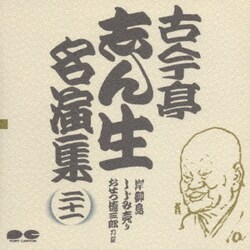 古今亭
志ん生
名演集
二十一
岸柳島
しじみ売り
おせつ徳三郎
PONY CANYON